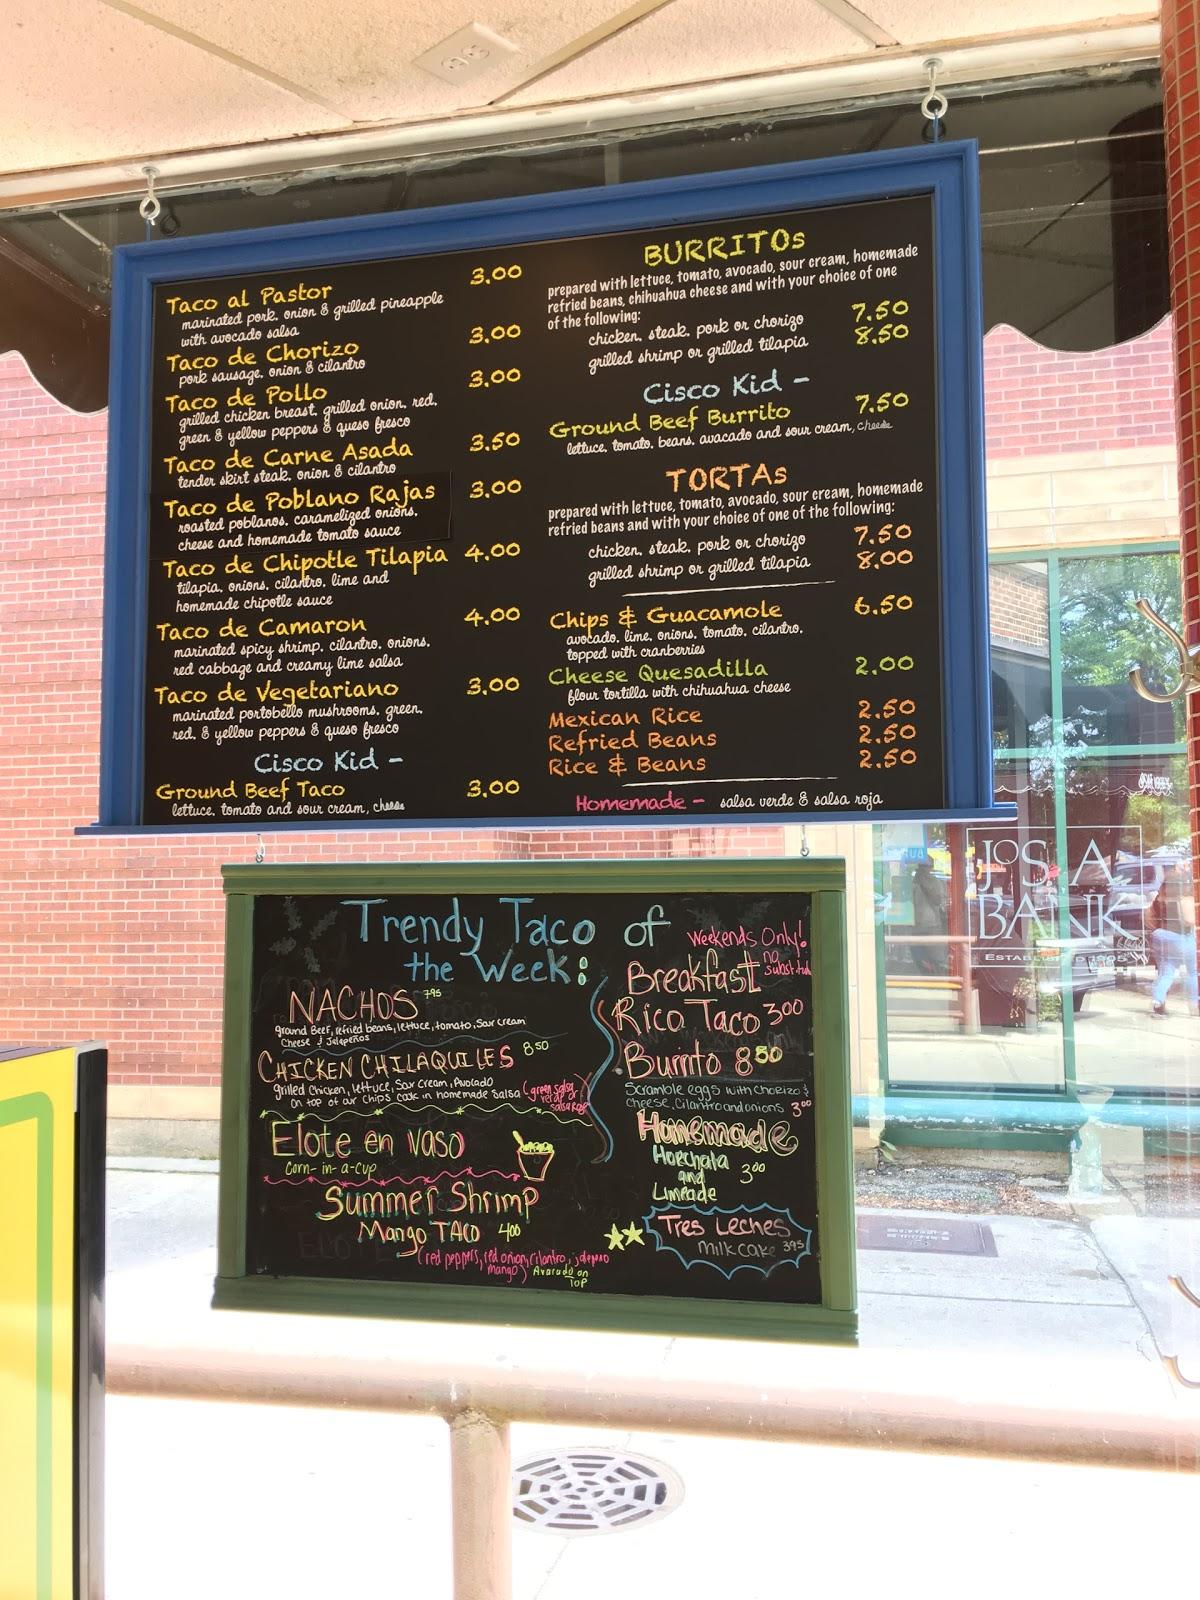 Taco al Pastor 3.00
marinated pork, onion & grilled pineapple
with avocado salsa
Taco de Chorizo 3.00
pork sausage, onion & cilantro
Taco de Pollo 3.00
grilled chicken breast, grilled onion, red,
green & yellow peppers & queso fresco
Taco de Carne Asada 3.50
tender skirt steak, onion & cilantro
Taco de Poblano Rajas 3.00
roasted poblanos, caramelized onions,
cheese and homemade tomato sauce
Taco de Chipotle Tilapia 4.00
tilapia, onions, cilantro, lime and
homemade chipotle sauce
Taco de Camaron 4.00
marinated spicy shrimp, cilantro, onions,
red cabbage and creamy lime salsa
Taco de Vegetariano 3.00
marinated portobello mushrooms, green,
red, & yellow peppers & queso fresco
Cisco Kid -
Ground Beef Taco 3.00
lettuce, tomato and sour cream, cheese
BURRITOs
prepared with lettuce, tomato, avocado, sour cream, homemade
refried beans, chihuahua cheese and with your choice of one
of the following:
chicken, steak, pork or chorizo 7.50
grilled shrimp or grilled tilapia 8.50
Cisco Kid -
Ground Beef Burrito 7.50
lettuce, tomato, beans, avacado and sour cream, cheese
TORTAs
prepared with lettuce, tomato, avocado, sour cream, homemade
refried beans and with your choice of one of the following:
chicken, steak, pork or chorizo 7.50
grilled shrimp or grilled tilapia 8.00
Chips & Guacamole 6.50
avocado, lime, onions, tomato, cilantro,
topped with cranberries
Cheese Quesadilla 2.00
flour tortilla with chihuahua cheese
Mexican Rice 2.50
Refried Beans 2.50
Rice & Beans 2.50
Homemade - salsa verde & salsa roja
Trendy Taco of
the Week:
NACHOS 7.95
ground Beef, refried beans, lettuce, tomato, Sour cream
Cheese & Jalepeños
CHICKEN CHILAQUILES 8.50
Grilled Chicken, lettuce, Sour Cream, Avocado
on top of our Chips cook in homemade Salsa (green salsa
Elote en vaso
Corn-in-a-cup
Summer Shrimp
Mango TACO 4.00
(red peppers, red onion, cilantro, jalepeno
mango) Avacado on
TOP
Weekends Only!
Breakfast no
Rico Taco 3.00
Burrito 8.50
Scramble eggs with chorizo &
cheese, Cilantro and onions 3.00
Homemade
Horchata
and 3.00
Limeade
Tres Leches
Milk Cake 3.95
JOS. A.
BANK
ESTABLISHED 1905